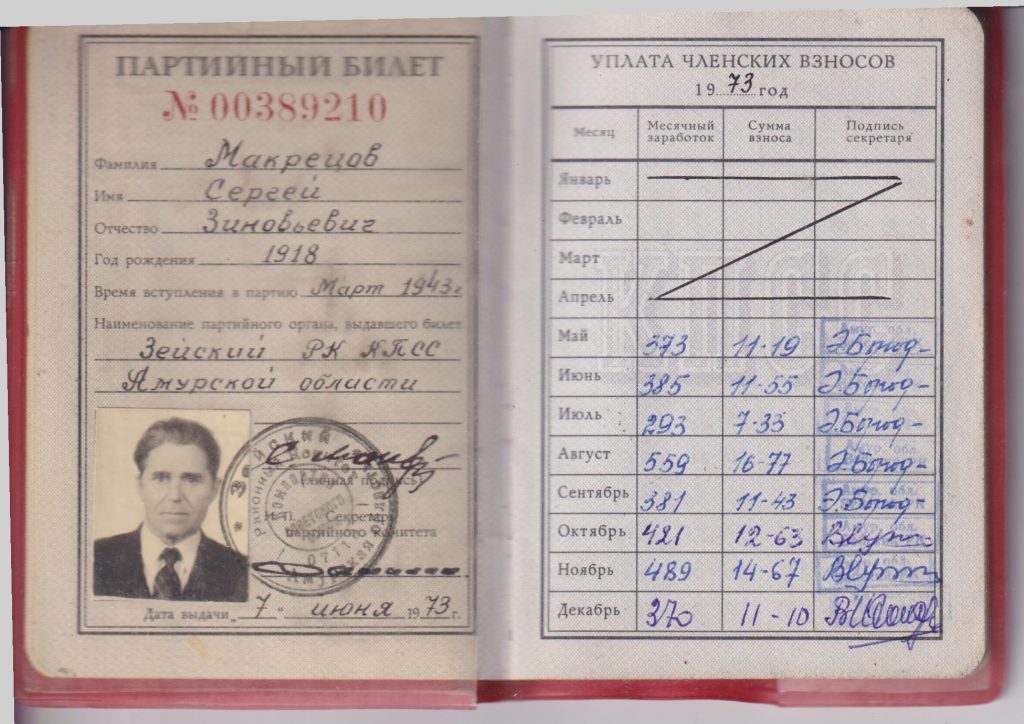 ПАРТИЙНЫЙ БИЛЕТ
№ 00389210
Фамилия Макрецов
Имя Сергей
Отчество Зиновьевич
Год рождения 1918
Время вступления в партию Март 1943 г
Наименование партийного органа, выдавшего билет
Зейский РК КПСС
Амурской области
(личная подпись)
М. П. Секретарь
партийного комитета
Дата выдачи „7“ июня 1973 г.
УПЛАТА ЧЛЕНСКИХ ВЗНОСОВ
1973 год
Месяц Месячный заработок Сумма взноса Подпись секретаря
Январь
Февраль
Март
Апрель
Май 373 11-19
Июнь 385 11-55
Июль 293 7-33
Август 559 16-77
Сентябрь 381 11-43
Октябрь 421 12-63
Ноябрь 489 14-67
Декабрь 370 11-10